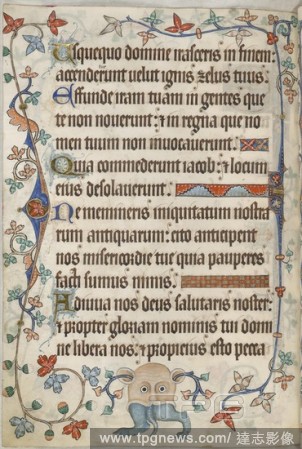 Usquequo domine irasceris in finem:
accendetur velut ignis zelus tuus.
Effunde iram tuam in gentes que
te non noverunt: & in regna que no
men tuum non invocaverunt.
Quia commederunt iacob: & locum
eius desolaverunt.
Ne memineris iniquitatum nostra
rum antiquarum: cito anticipent
nos misericordie tue quia pauperes
facti sumus nimis.
Adiuva nos deus salutaris noster:
& propter gloriam nominis tui domi
ne libera nos: & propicius esto pecca
www.tpgnews.com/ 達志影像